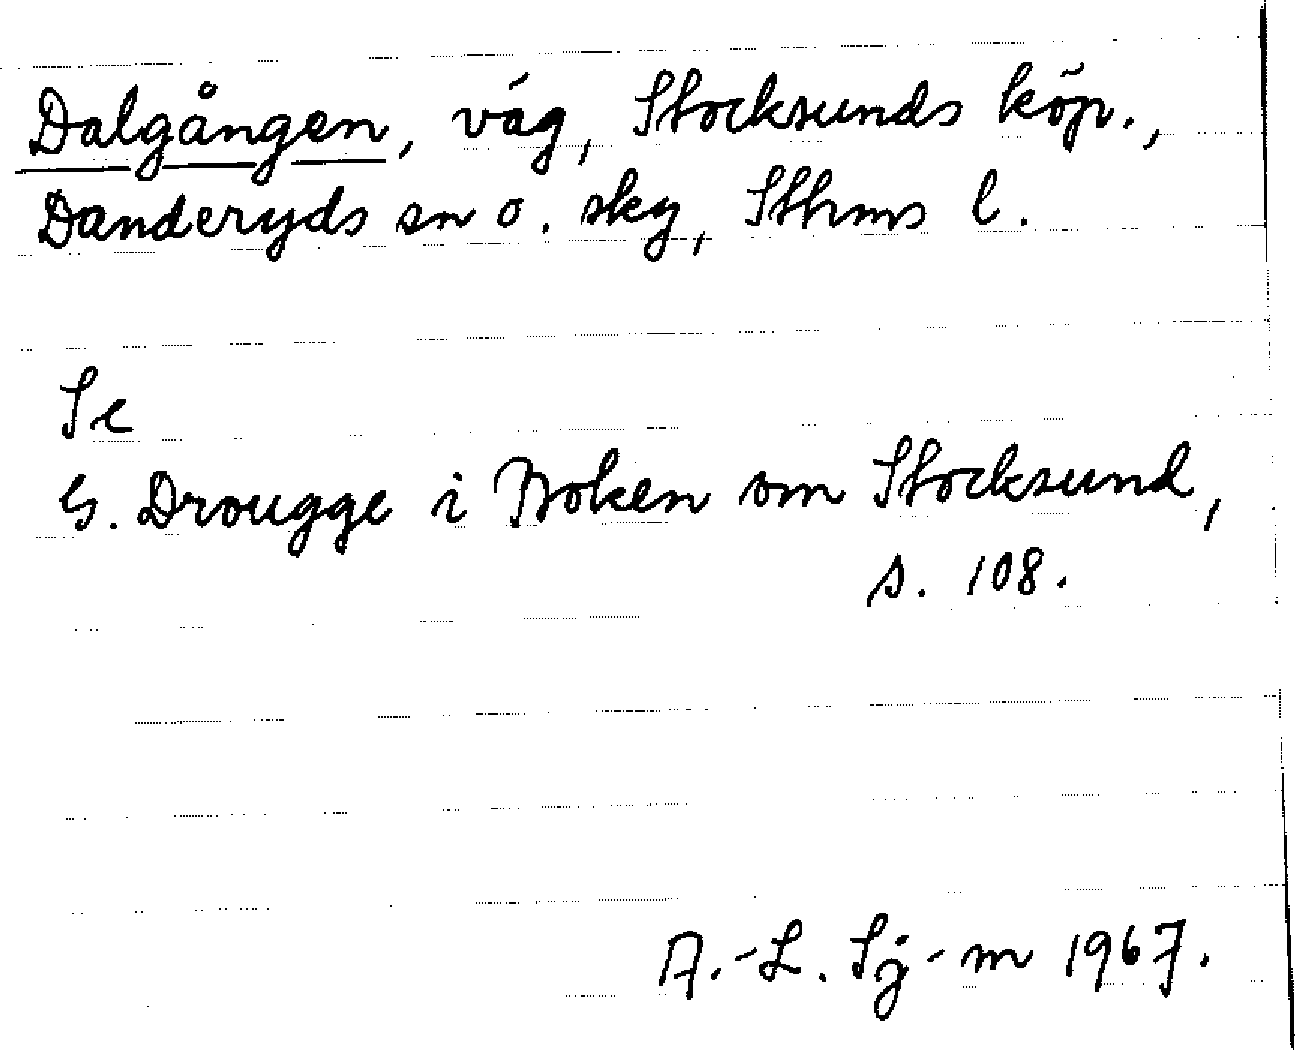 Dalgången, väg, Stocksunds köp.,
Danderyds sn o. sky, Sthms l.
Se
G. Drougge i Boken om Stocksund,
s. 108.
A.-L. Sj-m 1967.